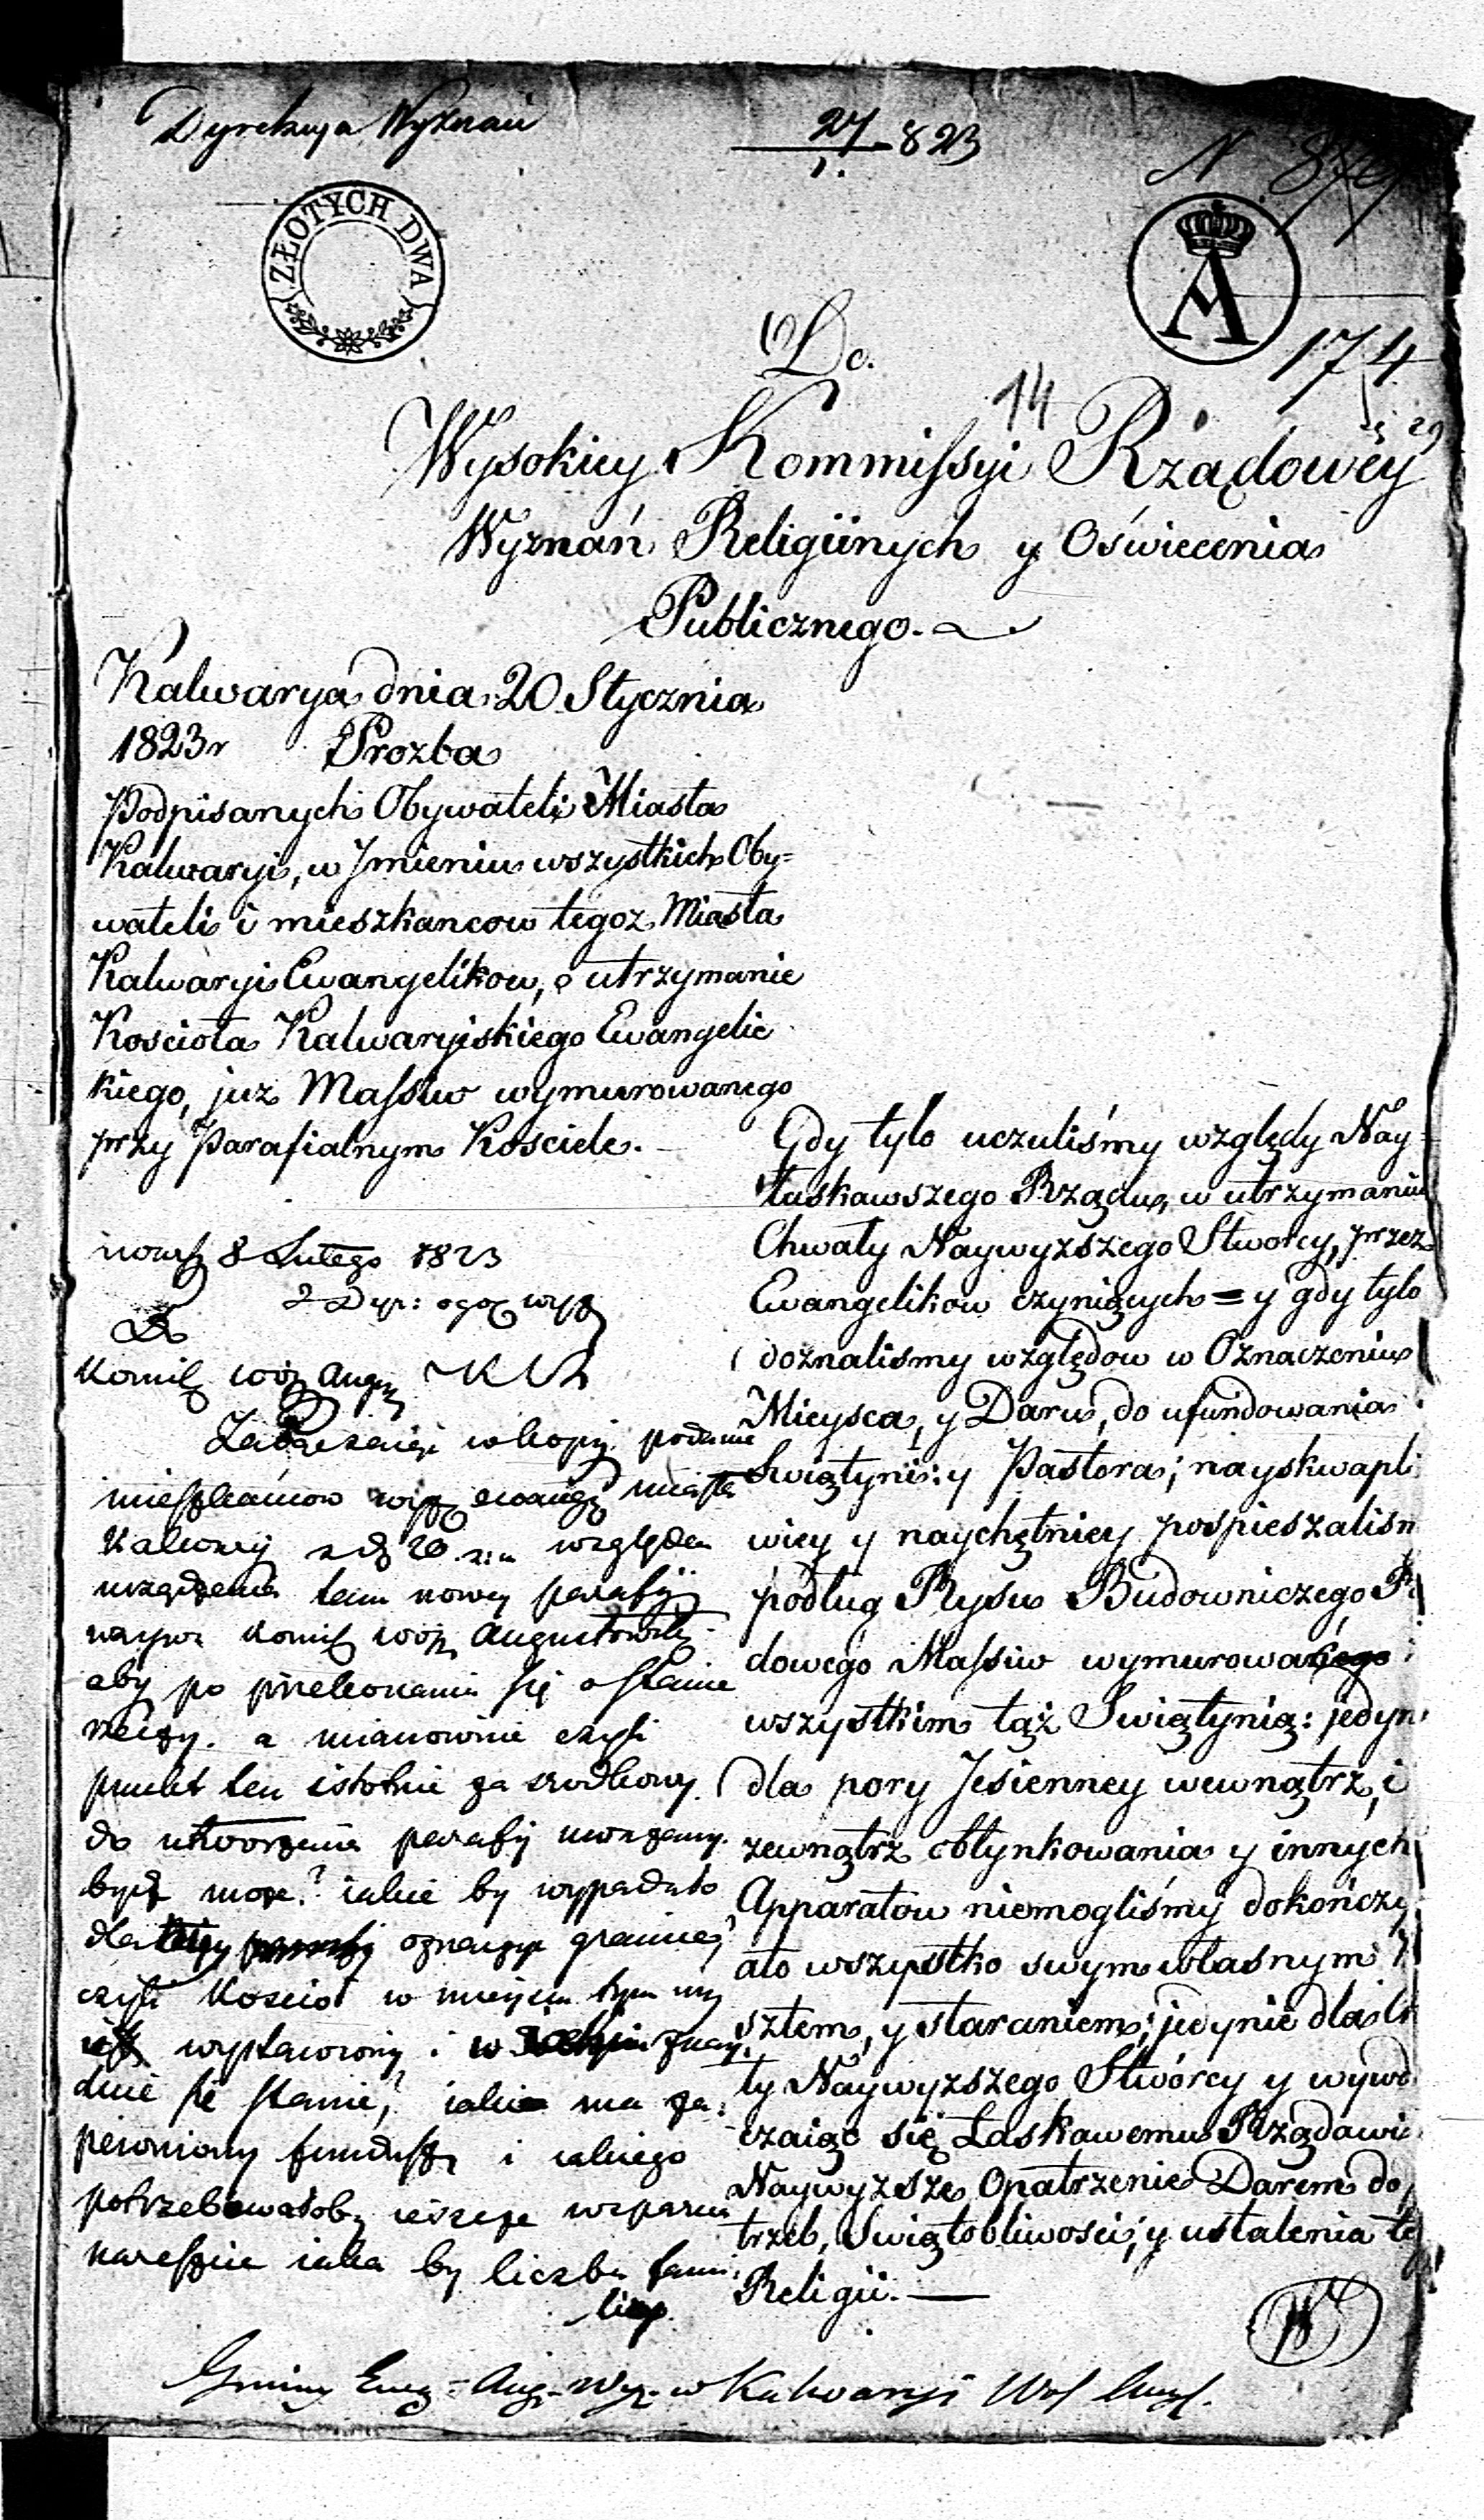 Dyrekcya Wyznań
27/1. 823
N 879
ZŁOTYCH DWA
A
174
Do.
14
Wysokiey Kommissyi Rządowey
Wyznań Religiinych y Oświecenia
Publicznego.
Kalwarya dnia 20 Stycznia
1823r Prozba
Podpisanych Obywateli Miasta
Kalwaryi, w Jmieniu wszystkich Oby=
wateli i mieszkancow tegoz Miasta
Kalwaryi Ewangelikow, o utrzymanie
Kościoła Kalwaryiskiego Ewangelic
kiego, juz Massiw wymurowanego
przy Parafialnym Kosciele.
8 Lutego 1823
Komis woj Aug
w kopij podanie
mieszkańcow ewang miasta
Kalwary z d 20 względem
urządzenia tam nowey parafij
wzywa Komis woj Augustowsk
aby po przekonaniu się o stanie
rzeczy. a mianowicie czyli
punkt ten istotnie za srodkowy
do utworzenia parafij uważany
bydź może? iakie by wypadało
dla oznaczyć granice?
czyli Kościoł w mieyscu tym
iest wystawiony i w znay
duie się stanie? iaki ma za=
pewniony fundusz i iakiego
potrzebowałoby ieszcze wsparcia
nareszcie iaka by liczba fami
liip
Gdy tylo uczuliśmy względy Nay=
łaskawszego Rządu, w utrzymaniu
Chwały Naywyzszego Stworcy, przez
Ewangelikow czyniących = y gdy tylo
doznalismy względow w Oznaczeniu
Mieysca, y Daru, do ufundowania
Swiątyni: y Pastora; nayskwapli
wiey y naychętniey pospieszalism
podług Rysu Budowniczego R
dowego Massiw wymurowa
wszystkim tąż Swiątynią: jedyn
dla pory Jesienney wewnątrz, i
zewnątrz obtynkowania y innych
Apparatow niemogliśmy dokończy
ato wszystko swym własnym
sztem, y staraniem; jedynie dla
ły Naywyzszego Stwórcy y wywd
czaiąc się Łaskawemu Rządowi
Naywyzsze Opatrzenie Darem do
trzeb, Swiątobliwości; y ustalenia te
Religii.
Gminy Ewg = Aug. Wyz. w Kalwaryi